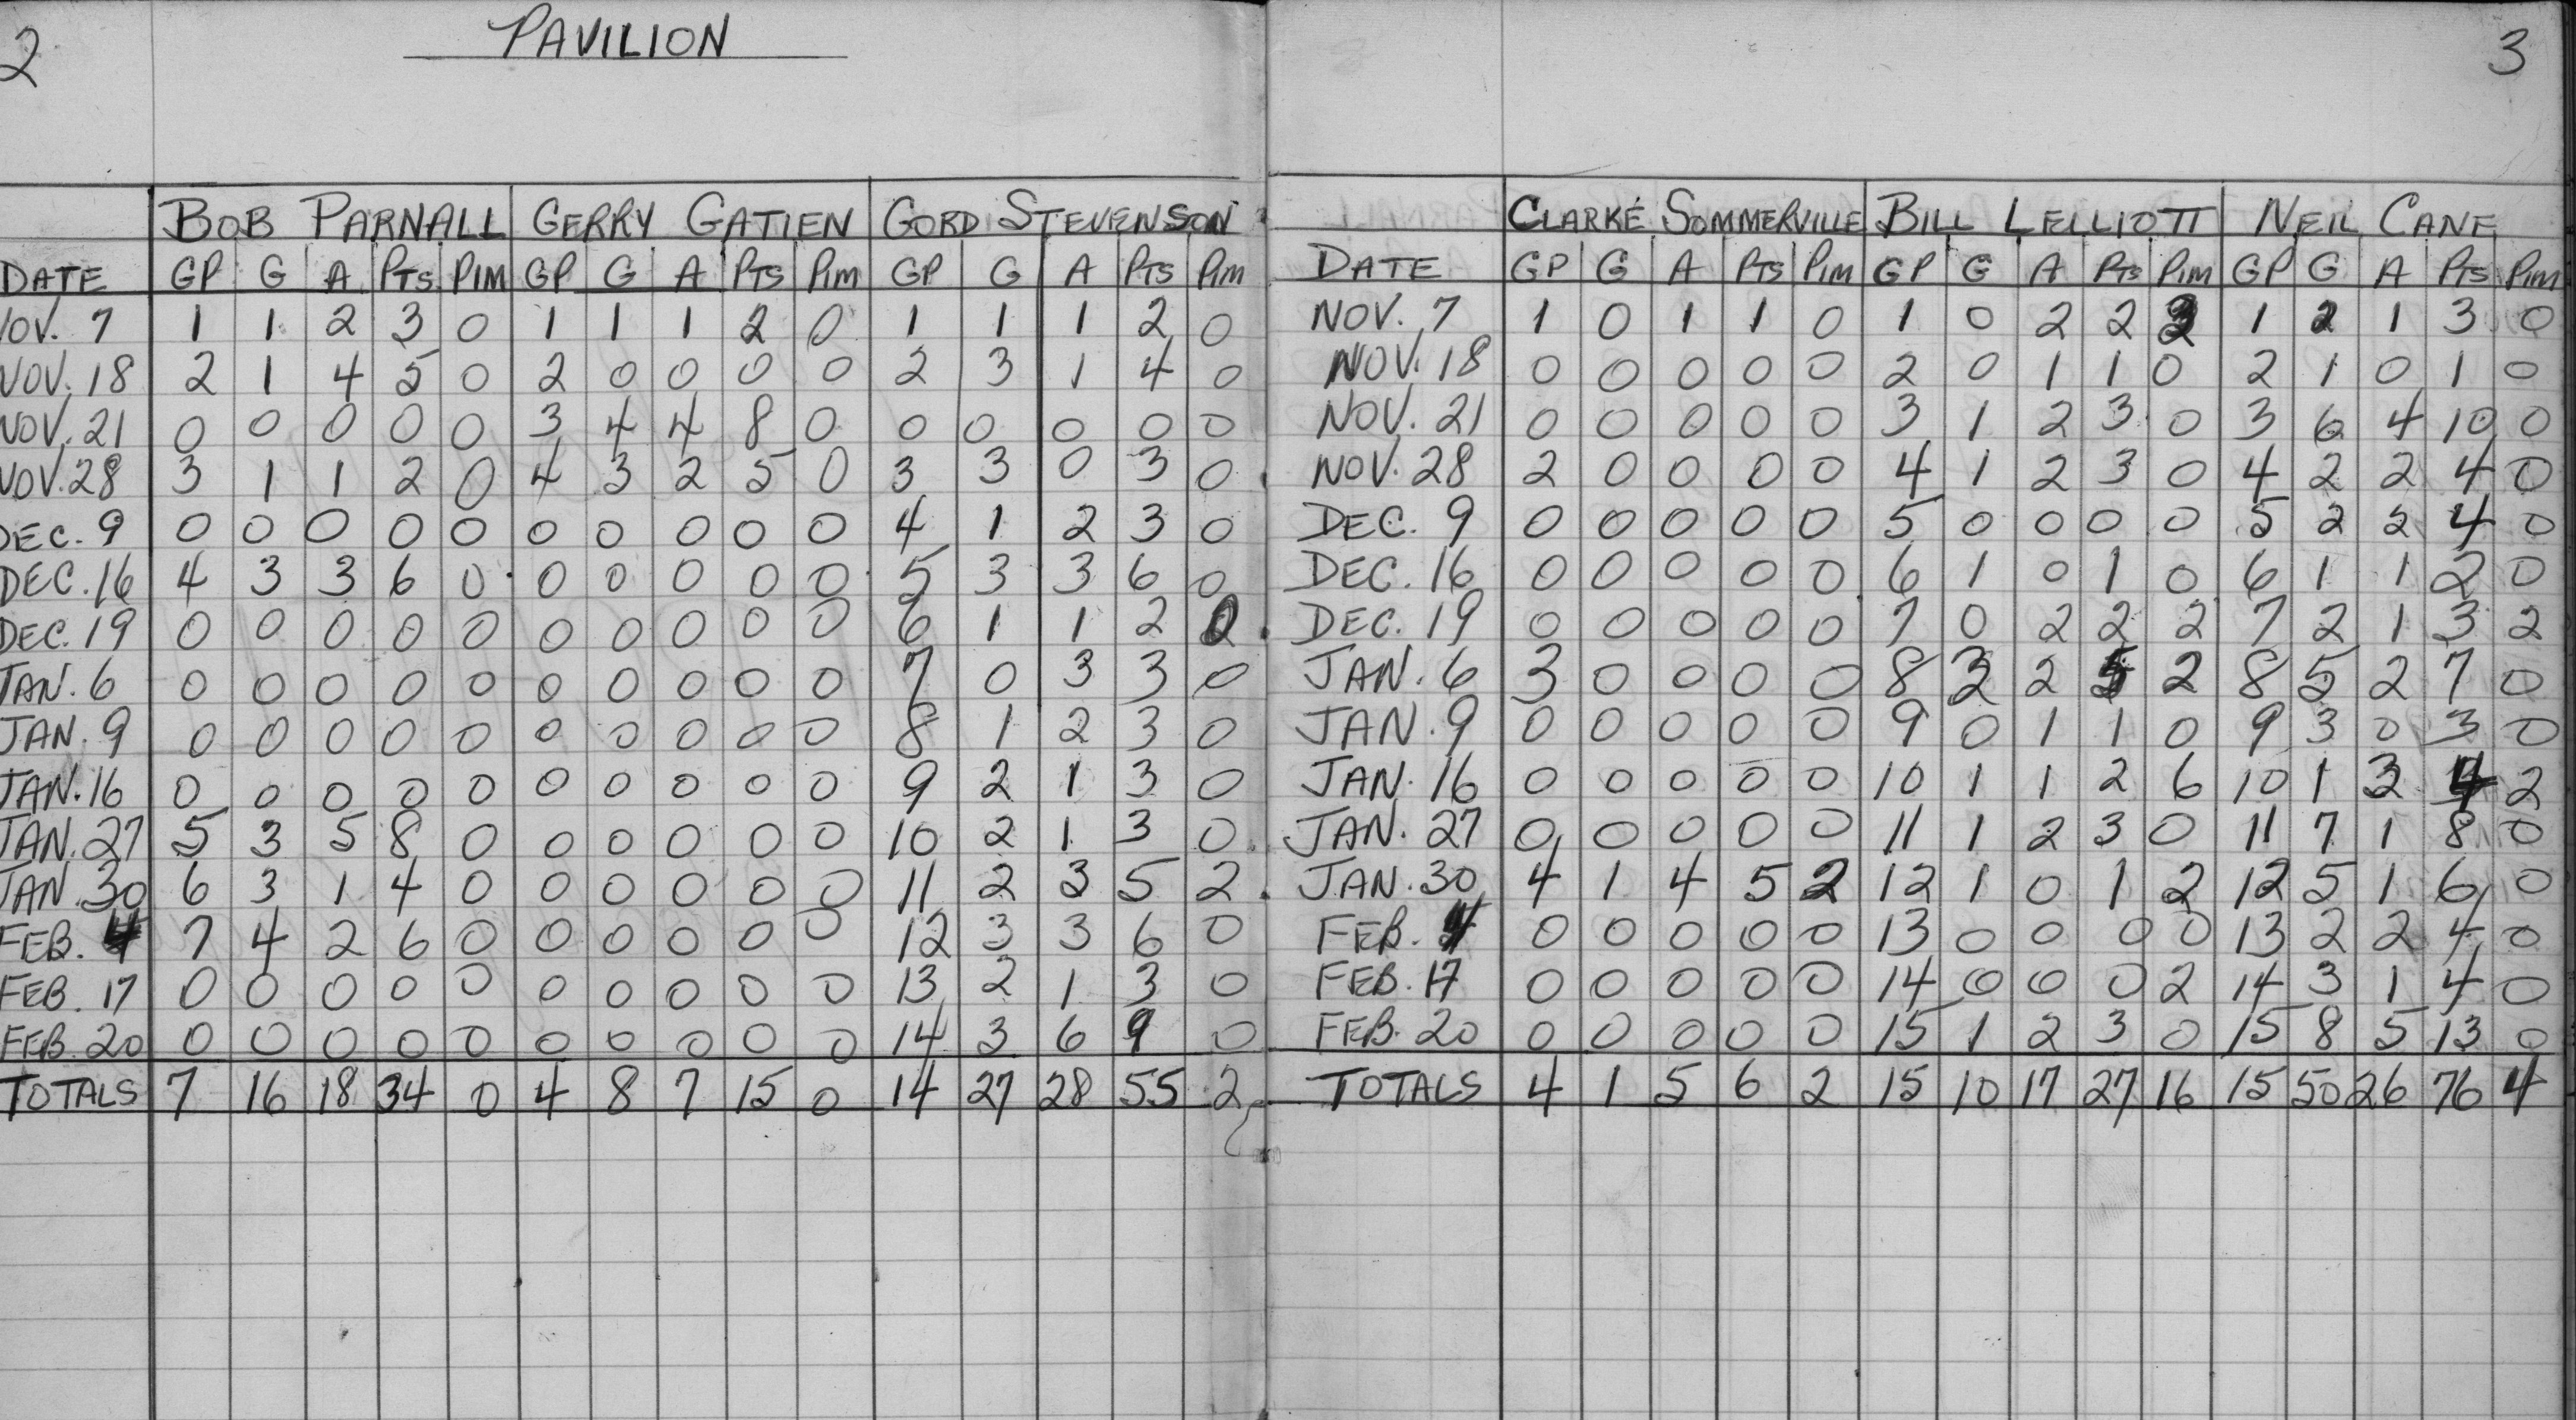 2
PAVILION
BOB PARNALL GERRY GATIEN GORD STEVENSON
DATE GP G A PTS PIM GP G A PTS PIM GP G A PTS PIM
NOV. 7 1 1 2 3 0 1 1 1 2 0 1 1 1 2 0
NOV. 18 2 1 4 5 0 2 0 0 0 0 2 3 1 4 0
NOV. 21 0 0 0 0 0 3 4 4 8 0 0 0 0 0 0
NOV. 28 3 1 1 2 0 4 3 2 5 0 3 3 0 3 0
DEC. 9 0 0 0 0 0 0 0 0 0 0 4 1 2 3 0
DEC. 16 4 3 3 6 0 0 0 0 0 0 5 3 3 6 0
DEC. 19 0 0 0 0 0 0 0 0 0 0 6 1 1 2 0
JAN. 6 0 0 0 0 0 0 0 0 0 0 7 0 3 3 0
JAN. 9 0 0 0 0 0 0 0 0 0 0 8 1 2 3 0
JAN. 16 0 0 0 0 0 0 0 0 0 0 9 2 1 3 0
JAN. 27 5 3 5 8 0 0 0 0 0 0 10 2 1 3 0
JAN. 30 6 3 1 4 0 0 0 0 0 0 11 2 3 5 2
FEB. 4 7 4 2 6 0 0 0 0 0 0 12 3 3 6 0
FEB. 17 0 0 0 0 0 0 0 0 0 0 13 2 1 3 0
FEB. 20 0 0 0 0 0 0 0 0 0 0 14 3 6 9 0
TOTALS 7 16 18 34 0 4 8 7 15 0 14 27 28 55 2
3
CLARKE SOMMERVILLE BILL LELLIOTT NEIL CANE
DATE GP G A PTS PIM GP G A PTS PIM GP G A PTS PIM
NOV. 7 1 0 1 1 0 1 0 2 2 2 1 2 1 3 0
NOV. 18 0 0 0 0 0 2 0 1 1 0 2 1 0 1 0
NOV. 21 0 0 0 0 0 3 1 2 3 0 3 6 4 10 0
NOV. 28 2 0 0 0 0 4 1 2 3 0 4 2 2 4 0
DEC. 9 0 0 0 0 0 5 0 0 0 0 5 2 2 4 0
DEC. 16 0 0 0 0 0 6 1 0 1 0 6 1 1 2 0
DEC. 19 0 0 0 0 0 7 0 2 2 2 7 2 1 3 2
JAN. 6 3 0 0 0 0 8 3 2 5 2 8 5 2 7 0
JAN. 9 0 0 0 0 0 9 0 1 1 0 9 3 0 3 0
JAN. 16 0 0 0 0 0 10 1 1 2 6 10 1 3 4 2
JAN. 27 0 0 0 0 0 11 1 2 3 0 11 7 1 8 0
JAN. 30 4 1 4 5 2 12 1 0 1 2 12 5 1 6 0
FEB. 4 0 0 0 0 0 13 0 0 0 0 13 2 2 4 0
FEB. 17 0 0 0 0 0 14 0 0 0 2 14 3 1 4 0
FEB. 20 0 0 0 0 0 15 1 2 3 0 15 8 5 13 0
TOTALS 4 1 5 6 2 15 10 17 27 16 15 50 26 76 4